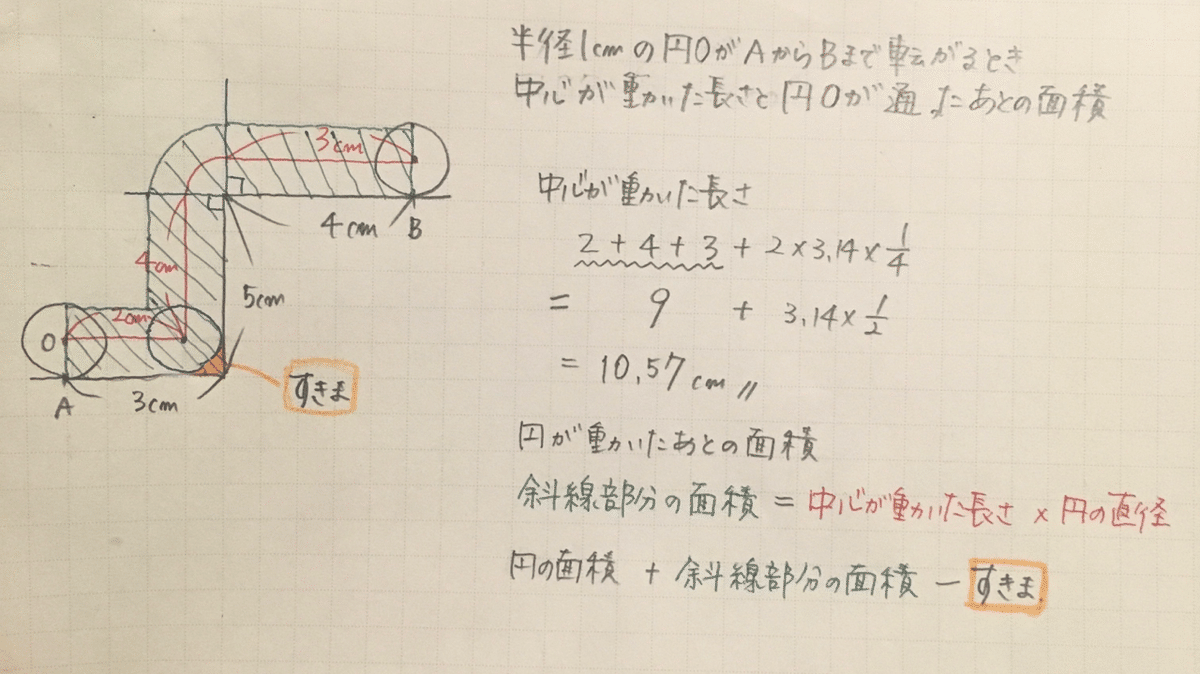 半径1cmの円OがAからBまで転がるとき
中心が動いた長さと円Oが通ったあとの面積
3cm
4cm
B
4cm
5cm
2cm
O
A
3cm
すきま
中心が動いた長さ
2+4+3+2×3.14×1/4
= 9 + 3.14×1/2
= 10.57cm〃
円が動いたあとの面積
斜線部分の面積 = 中心が動いた長さ × 円の直径
円の面積 + 斜線部分の面積 − すきま